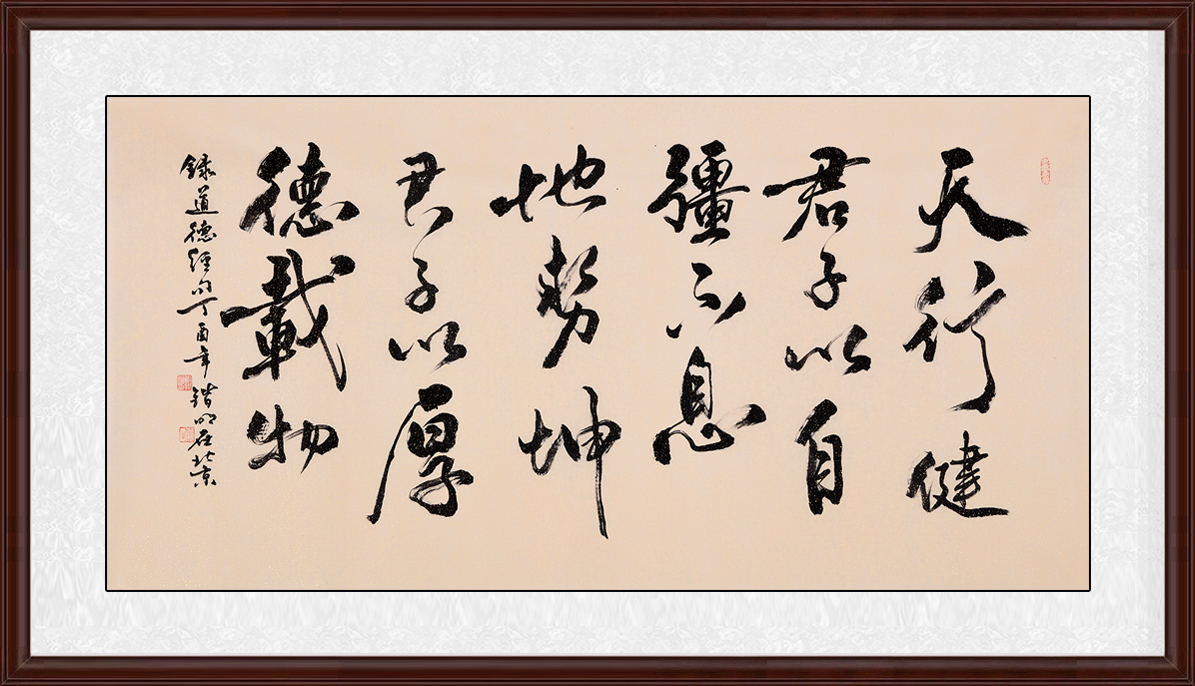 天行健
君子以自
彊不息
地勢坤
君子以厚
德載物
録道德經句丁酉年
在北京